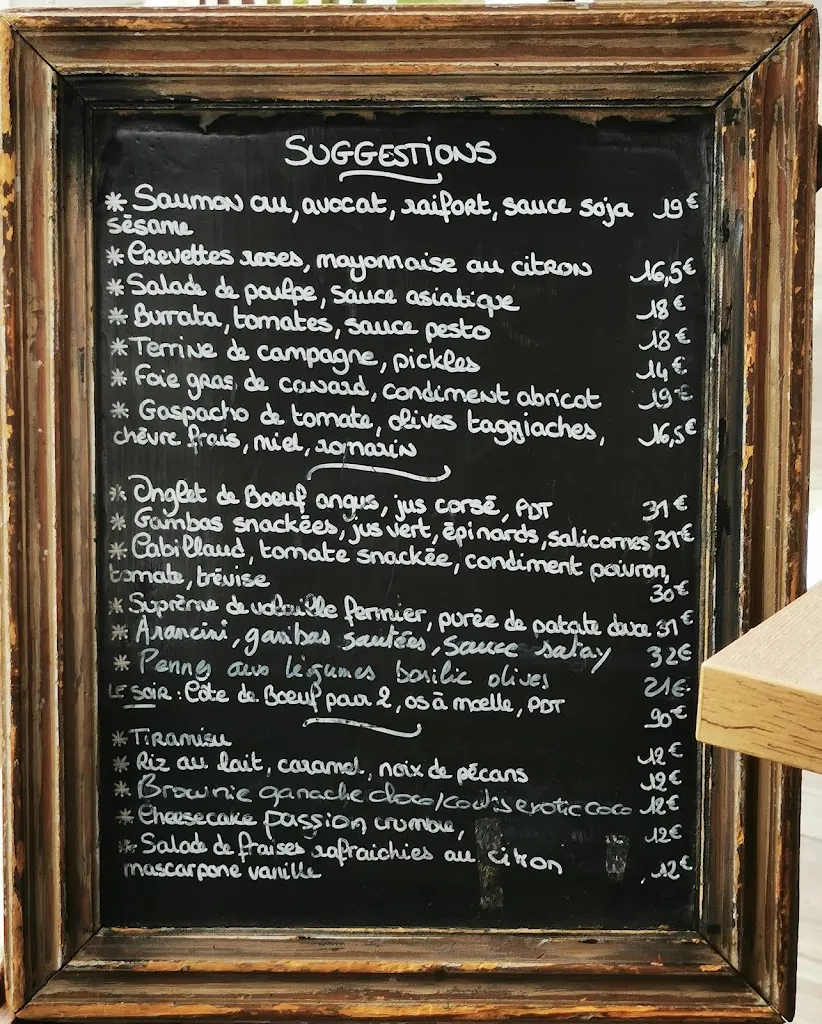 SUGGESTIONS
* Saumon cru, avocat, raifort, sauce soja 19€
sésame
* Crevettes roses, mayonnaise au citron 16,5€
* Salade de poulpe, sauce asiatique 18€
* Burrata, tomates, sauce pesto 18€
* Terrine de campagne, pickles 14€
* Foie gras de canard, condiment abricot 19€
* Gaspacho de tomate, olives taggiaches, 16,5€
chèvre frais, miel, romarin
* Onglet de Boeuf angus, jus corsé, PDT 31€
* Gambas snackées, jus vert, épinards, salicornes 31€
* Cabillaud, tomate snackée, condiment poivron,
tomate, trévise 30€
* Suprême de volaille fermier, purée de patate douce 31€
* Arancini, gambas sautées, sauce satay 32€
* Pennes aux légumes basilic olives 21€
LE SOIR : Côte de Boeuf pour 2, os à moelle, PDT 90€
* Tiramisu 12€
* Riz au lait, caramel, noix de pécans 12€
* Brownie ganache choco/coulis exotic coco 12€
* Cheesecake passion crumble, 12€
* Salade de fraises rafraichies au citron
mascarpone vanille 12€